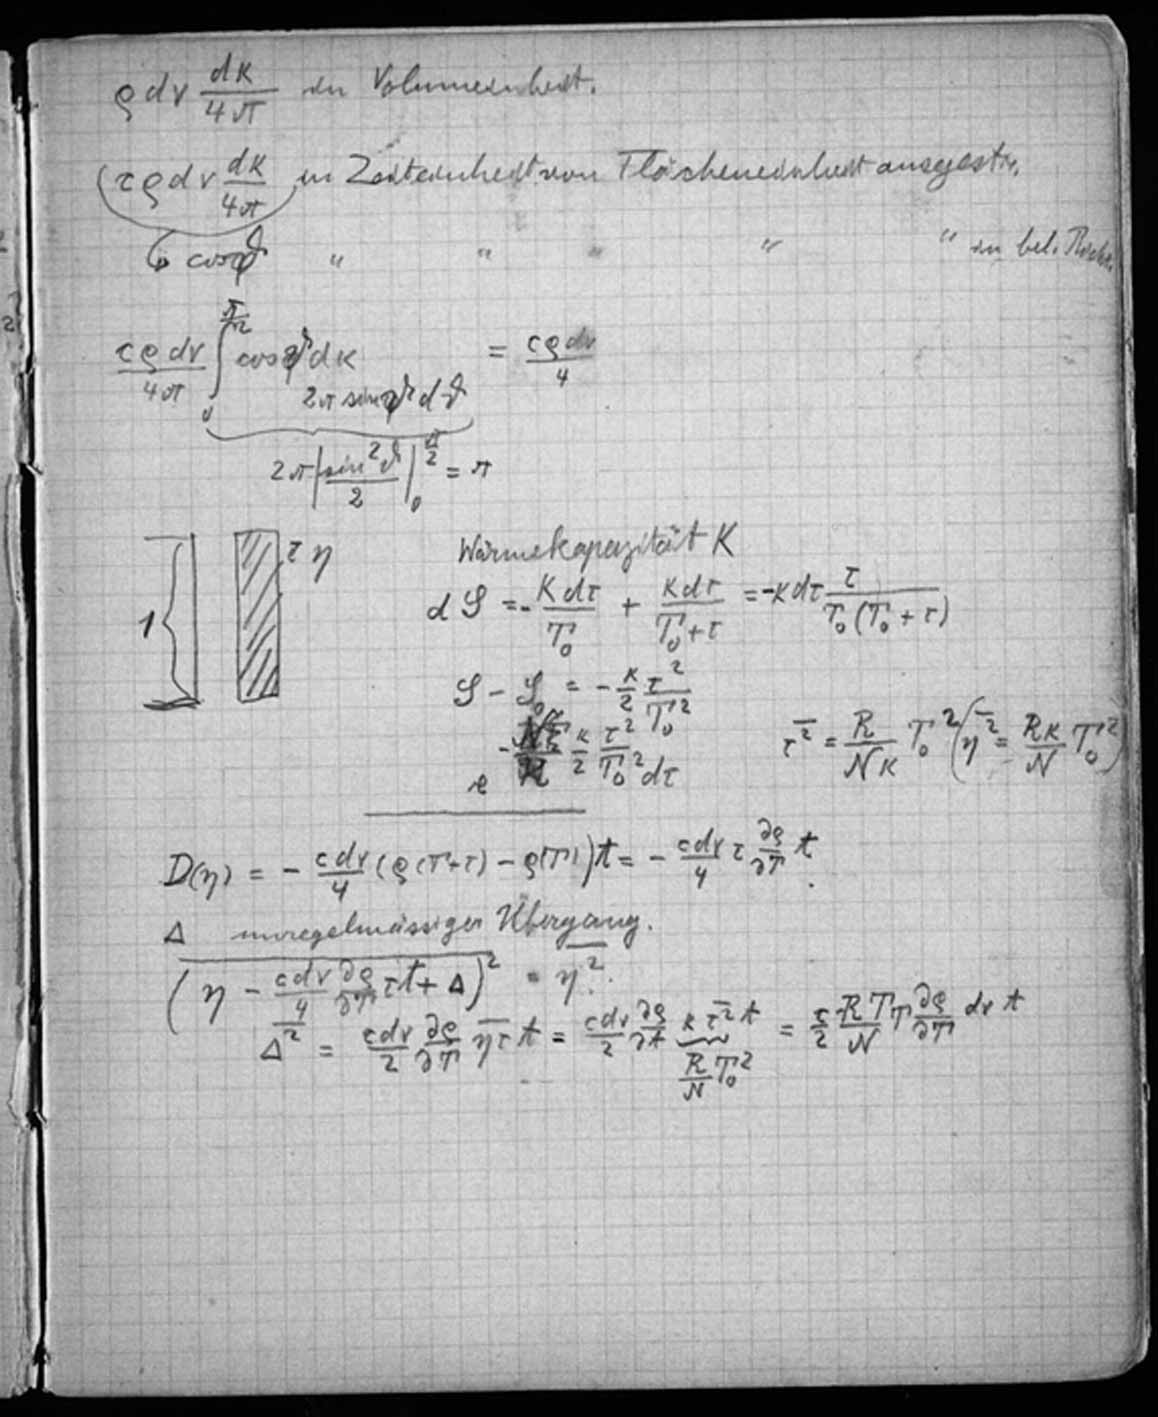 ρ dν dκ/4π in Volumeinheit.
(cρ dν dκ/4π) in Zeiteinheit von Flächeneinheit ausgestr.
cos ϑ " " " " in bel. Richt.
cρ dν/4π ∫₀^{π/2} cos ϑ dκ = cρ dν/4
2π sin ϑ dϑ
2π |sin²ϑ/2|₀^{π/2} = π
1 τ η Wärmekapazität K
dS = - K dτ/T₀ + K dτ/(T₀+τ) = -K dτ τ/(T₀(T₀+τ))
S - S₀ = - κ/2 τ²/T₀²
e - N/R κ/2 τ²/T₀² dτ
τ̄² = R/(Nκ) T₀² (η̄² = Rκ/N T₀²)
D(η) = - c dν/4 (ρ(T+τ) - ρ(T)) t = - c dν/4 τ ∂ρ/∂T t.
Δ unregelmässiger Übergang.
(η - c dν/4 ∂ρ/∂T τ t + Δ)² = η̄².
Δ̄² = c dν/2 ∂ρ/∂T η̄τ̄ t = c dν/2 ∂ρ/∂t κ τ̄² t = c/2 RT/N T ∂ρ/∂T dν t
R/N T₀²